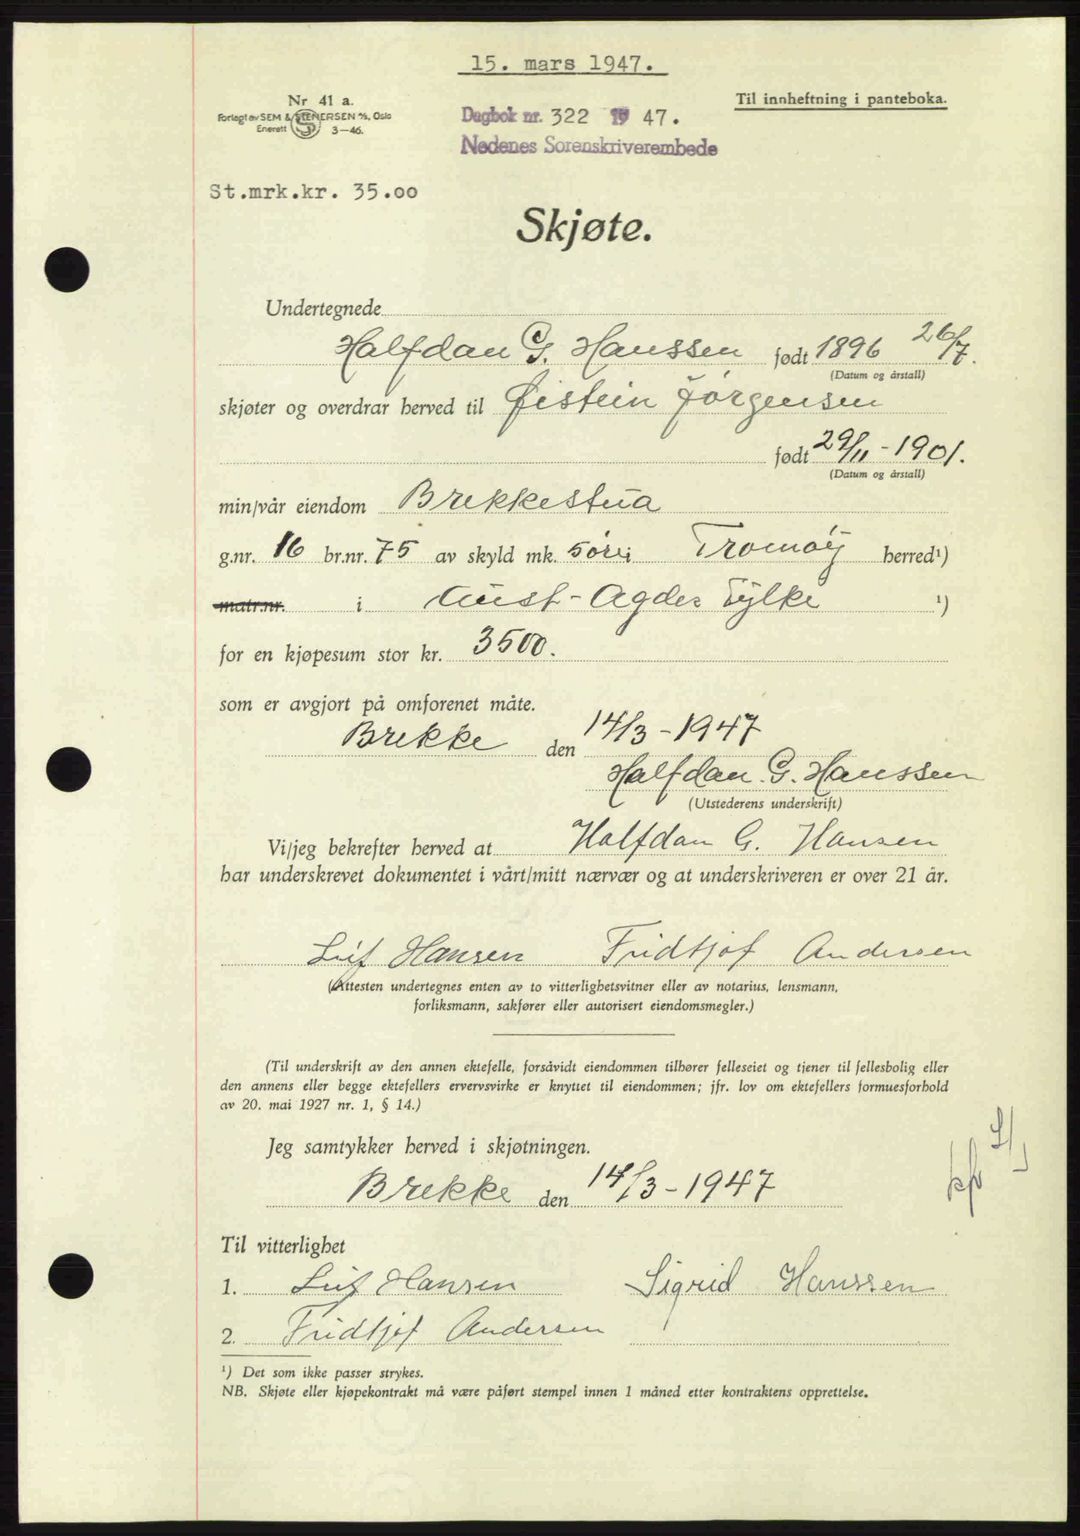 15. mars 1947.
Nr 41 a.
Forlagt av SEM & STENERSEN A/S, Oslo
Enerett 3—46.
Dagbok nr. 322 19 47.
Nedenes Sorenskriverembede
Til innheftning i panteboka.
St.mrk.kr. 35.00
Skjøte.
Undertegnede
Halfdan G. Hanssen født 1896 26/7.
(Datum og årstall)
skjøter og overdrar herved til Øistein Jørgensen
født 29/11 - 1901.
(Datum og årstall)
min/vår eiendom Brekkestua
g.nr. 16 br.nr. 75 av skyld mk. 5 øre i Tromøy herred¹)
matr.nr. i Aust-Agder Fylke ¹)
for en kjøpesum stor kr. 3500.
som er avgjort på omforenet måte.
Brekke den 14/3 - 1947
Halfdan G. Hanssen
(Utstederens underskrift)
Vi/jeg bekrefter herved at Halfdan G. Hansen
har underskrevet dokumentet i vårt/mitt nærvær og at underskriveren er over 21 år.
Leif Hansen Fridtjof Andersen
(Attesten undertegnes enten av to vitterlighetsvitner eller av notarius, lensmann,
forliksmann, sakfører eller autorisert eiendomsmegler.)
(Til underskrift av den annen ektefelle, forsåvidt eiendommen tilhører felleseiet og tjener til fellesbolig eller
den annens eller begge ektefellers ervervsvirke er knyttet til eiendommen; jfr. lov om ektefellers formuesforhold
av 20. mai 1927 nr. 1, § 14.)
Jeg samtykker herved i skjøtningen.
Brekke den 14/3 - 1947
Til vitterlighet
1. Leif Hansen Sigrid Hanssen
2. Fridtjof Andersen
¹) Det som ikke passer strykes.
NB. Skjøte eller kjøpekontrakt må være påført stempel innen 1 måned etter kontraktens opprettelse.